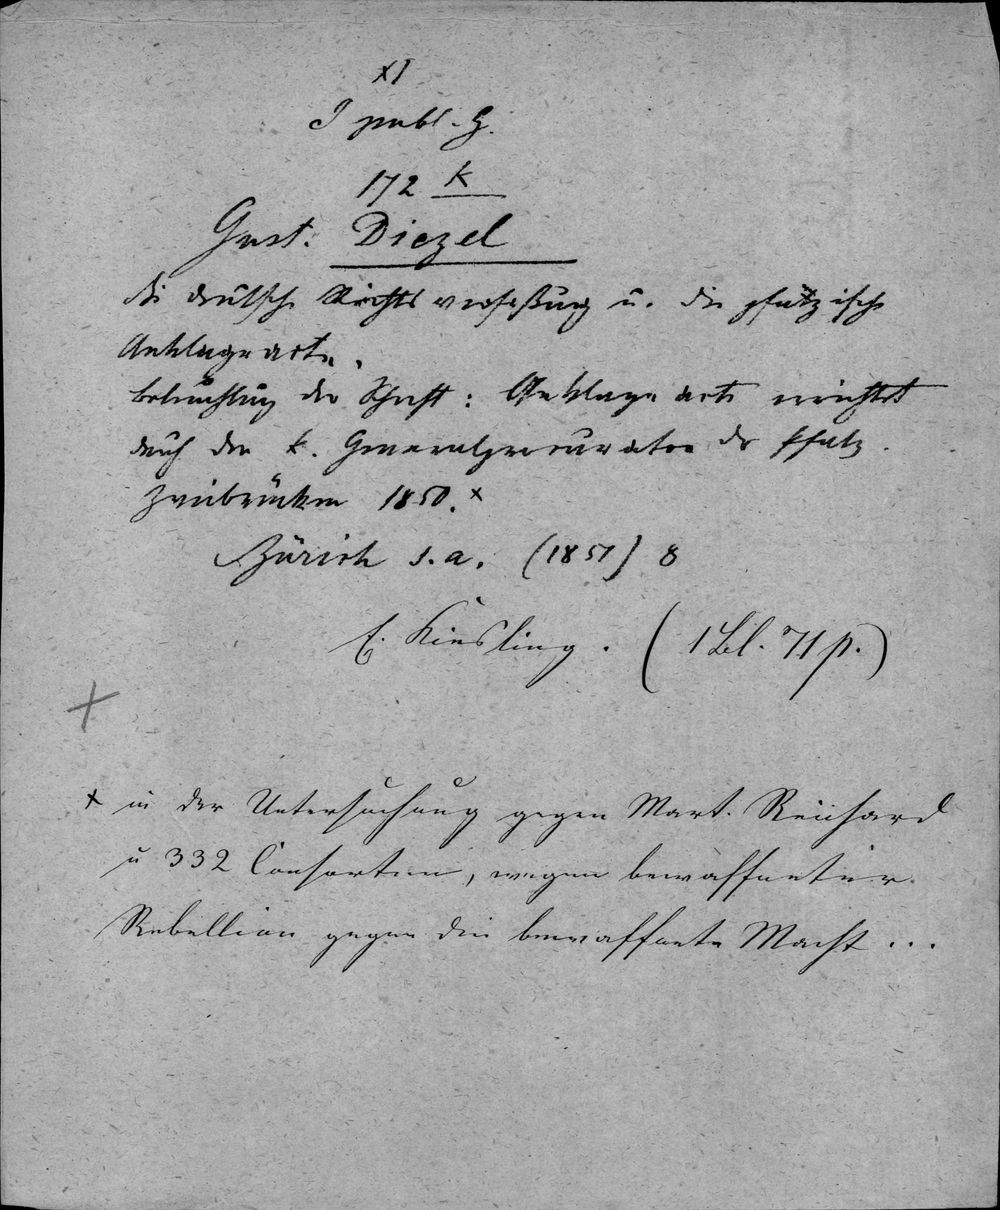 XI
J publ. G.
172 k
Gust. Diezel
die deutsche Reichsverfaßung u. die pfälzische
Anklageacte.
Beleuchtung der Schrift: Anklage acte errichtet
durch den k. Generalprocurator der Pfalz.
Zweibrücken 1850. x
Zürich s. a. (1851) 8
E. Kiesling. (1 Bl. 71 p.)
x
x in der Untersuchung gegen Mart. Reichard
u 332 Consorten, wegen bewaffneter
Rebellion gegen die bewaffnete Macht ...